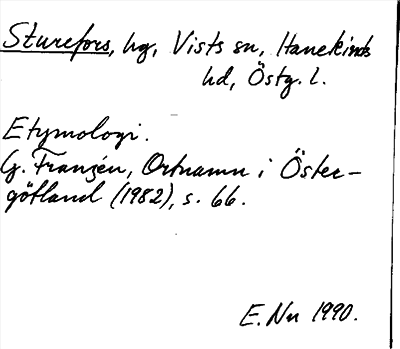 Sturefors, hg, Vists sn, Hanekinds
hd, Östg. l.
Etymologi.
G. Franzén, Ortnamn i Öster-
götland (1982), s. 66.
E. Nn 1990.